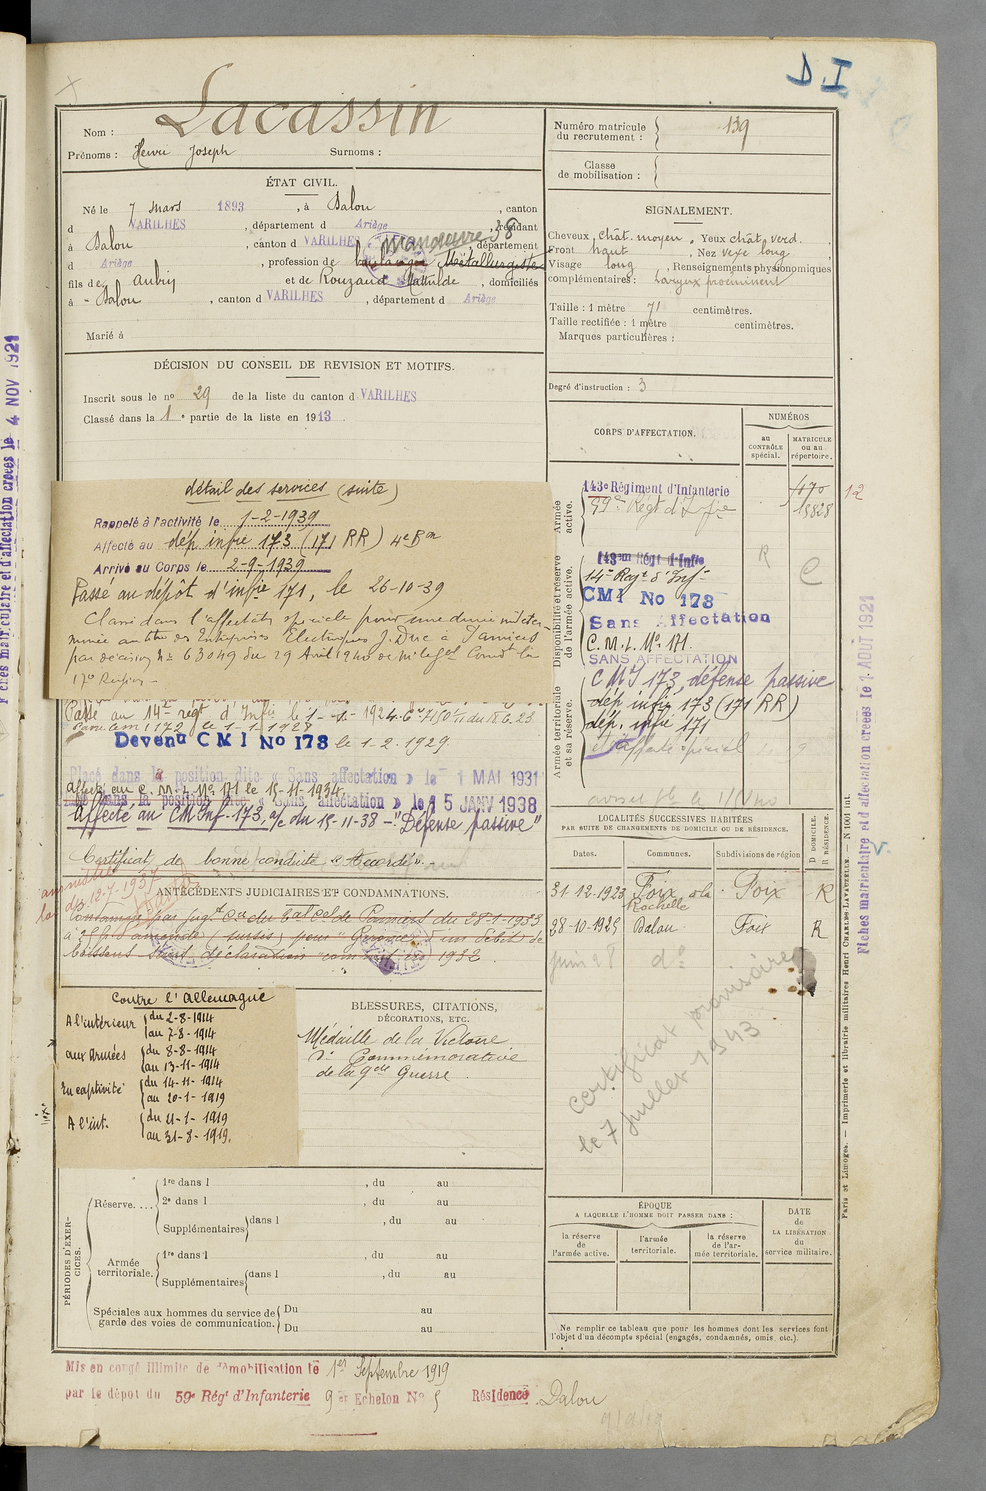 D.I
Lacassin
Nom :
Prénoms : Henri Joseph Surnoms :
ÉTAT CIVIL.
Né le 7 mars 1893, à Dalou, canton
d VARILHES, département d Ariège, résidant
à Dalou, canton d VARILHES, département
d Ariège, profession de boulanger Métallurgiste manœuvre 38
fils de Aubin et de Rouzaud Mathilde, domiciliés
à Dalou, canton d VARILHES, département d Ariège
Marié à
DÉCISION DU CONSEIL DE REVISION ET MOTIFS.
Inscrit sous le no 29 de la liste du canton d VARILHES
Classé dans la 1e partie de la liste en 1913
détail des services (suite)
Rappelé à l'activité le 1-2-1939
Affecté au dép infie 173 (171 RR) 4e Bon
Arrivé au Corps le 2-9-1939
Passé au dépôt d'infie 171, le 26-10-39
Classé dans l'affectation spéciale pour une durée indéter-
minée au titre des Entreprises Electriques J. Duc à Pamiers
par décision No 63049 du 29 Avril 1940 de
17e Région -
Passé au 14e régt d'Infie le 1-1-1924
le 1-1-1928
Devenu CMI No 173 le 1.2.1929
Placé dans la position dite « Sans affectation » le 1 MAI 1931
Affecté au C.M.I. No 171 le 15-11-1934.
Placé dans la position dite « Sans affectation » le 15 JANV 1938
Affecté au CM Inf. 173, a/c du 15-11-38 - "Défense passive"
Certificat de bonne conduite « Accordé ».
ANTÉCÉDENTS JUDICIAIRES ET CONDAMNATIONS.
Condamné par jugt du 28-1-1933
à d'amende (sursis) pour d'un débit de
boissons sans déclaration 1932.
Contre l'Allemagne
A l'intérieur du 2-8-1914
au 7-8-1914
aux Armées du 8-8-1914
au 13-11-1914
En captivité du 14-11-1914
au 20-1-1919
A l'int. du 21-1-1919
au 31-8-1919.
BLESSURES, CITATIONS,
DÉCORATIONS, ETC.
Médaille de la Victoire
do Commémorative
de la gde Guerre
PÉRIODES D'EXERCICES.
Réserve....
1re dans l , du au
2e dans l , du au
Supplémentaires dans l , du au
Armée territoriale.
1re dans l , du au
Supplémentaires dans l , du au
Spéciales aux hommes du service de garde des voies de communication.
Du au
Du au
Mis en congé illimité de démobilisation le 1er Septembre 1919
par le dépôt du 59e Régt d'Infanterie 9e Echelon No 5 Résidence Dalou
Numéro matricule
du recrutement : 139
Classe
de mobilisation :
SIGNALEMENT.
Cheveux, chât. moyen, Yeux chât. verd.
Front haut, Nez vexe long
Visage long, Renseignements physionomiques
complémentaires : Larynx proéminent
Taille : 1 mètre 71 centimètres.
Taille rectifiée : 1 mètre centimètres.
Marques particulières :
Degré d'instruction : 3
CORPS D'AFFECTATION.
NUMÉROS
au
CONTRÔLE
spécial.
MATRICULE
ou au
répertoire.
Armée
active.
143e Régiment d'Infanterie
59e Régt d'Infie
470
15828
12
Disponibilité et réserve
de l'armée active.
143me Régt d'Infie
14e Régt d'Infie
R
C
CMI No 173
Sans Affectation
C.M.I. No 171.
SANS AFFECTATION
Armée territoriale
et sa réserve.
CMI 173, défense passive
dép infie 173 (171 RR)
dép. infie 171
LOCALITÉS SUCCESSIVES HABITÉES
PAR SUITE DE CHANGEMENTS DE DOMICILE OU DE RÉSIDENCE.
Dates. Communes. Subdivisions de région D DOMICILE. R RÉSIDENCE.
31-12-1923 Foix Foix R
28-10-1925 Dalou Foix R
juin 28 do
certificat provisoire
le 7 juillet 1943
ÉPOQUE
A LAQUELLE L'HOMME DOIT PASSER DANS :
la réserve
de
l'armée active.
l'armée
territoriale.
la réserve
de l'armée territoriale.
DATE
de
LA LIBÉRATION
du
service militaire.
Ne remplir ce tableau que pour les hommes dont les services font
l'objet d'un décompte spécial (engagés, condamnés, omis, etc.).
Paris et Limoges. — Imprimerie et librairie militaires Henri CHARLES-LAVAUZELLE. — N 1001 int.
Fiches matriculaire et d'affectation créées le 1 AOUT 1921
Fiches matriculaire et d'affectation créées le 4 NOV 1921